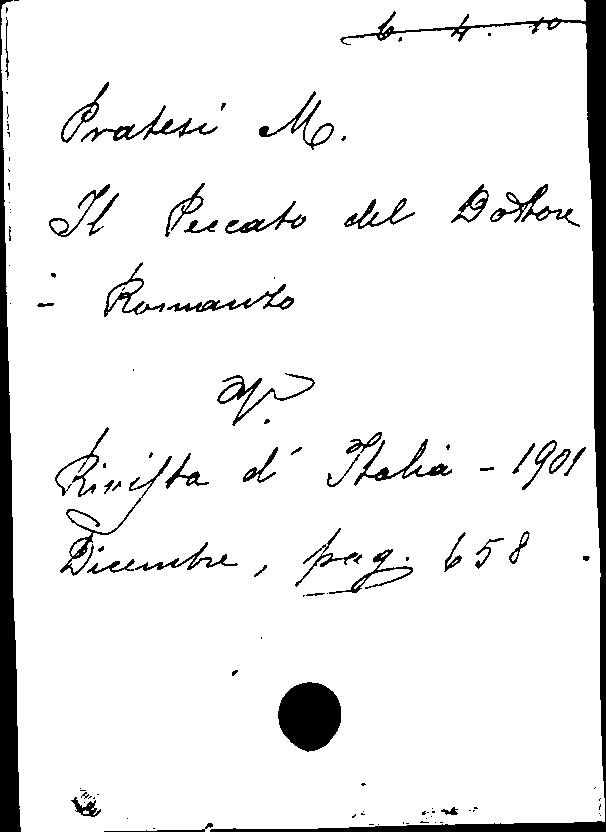 6. 4. 10
Pratesi M.
Il Peccato del Dottore
- Romanzo
ap.
Rivista d' Italia - 1901
Dicembre, pag. 658.